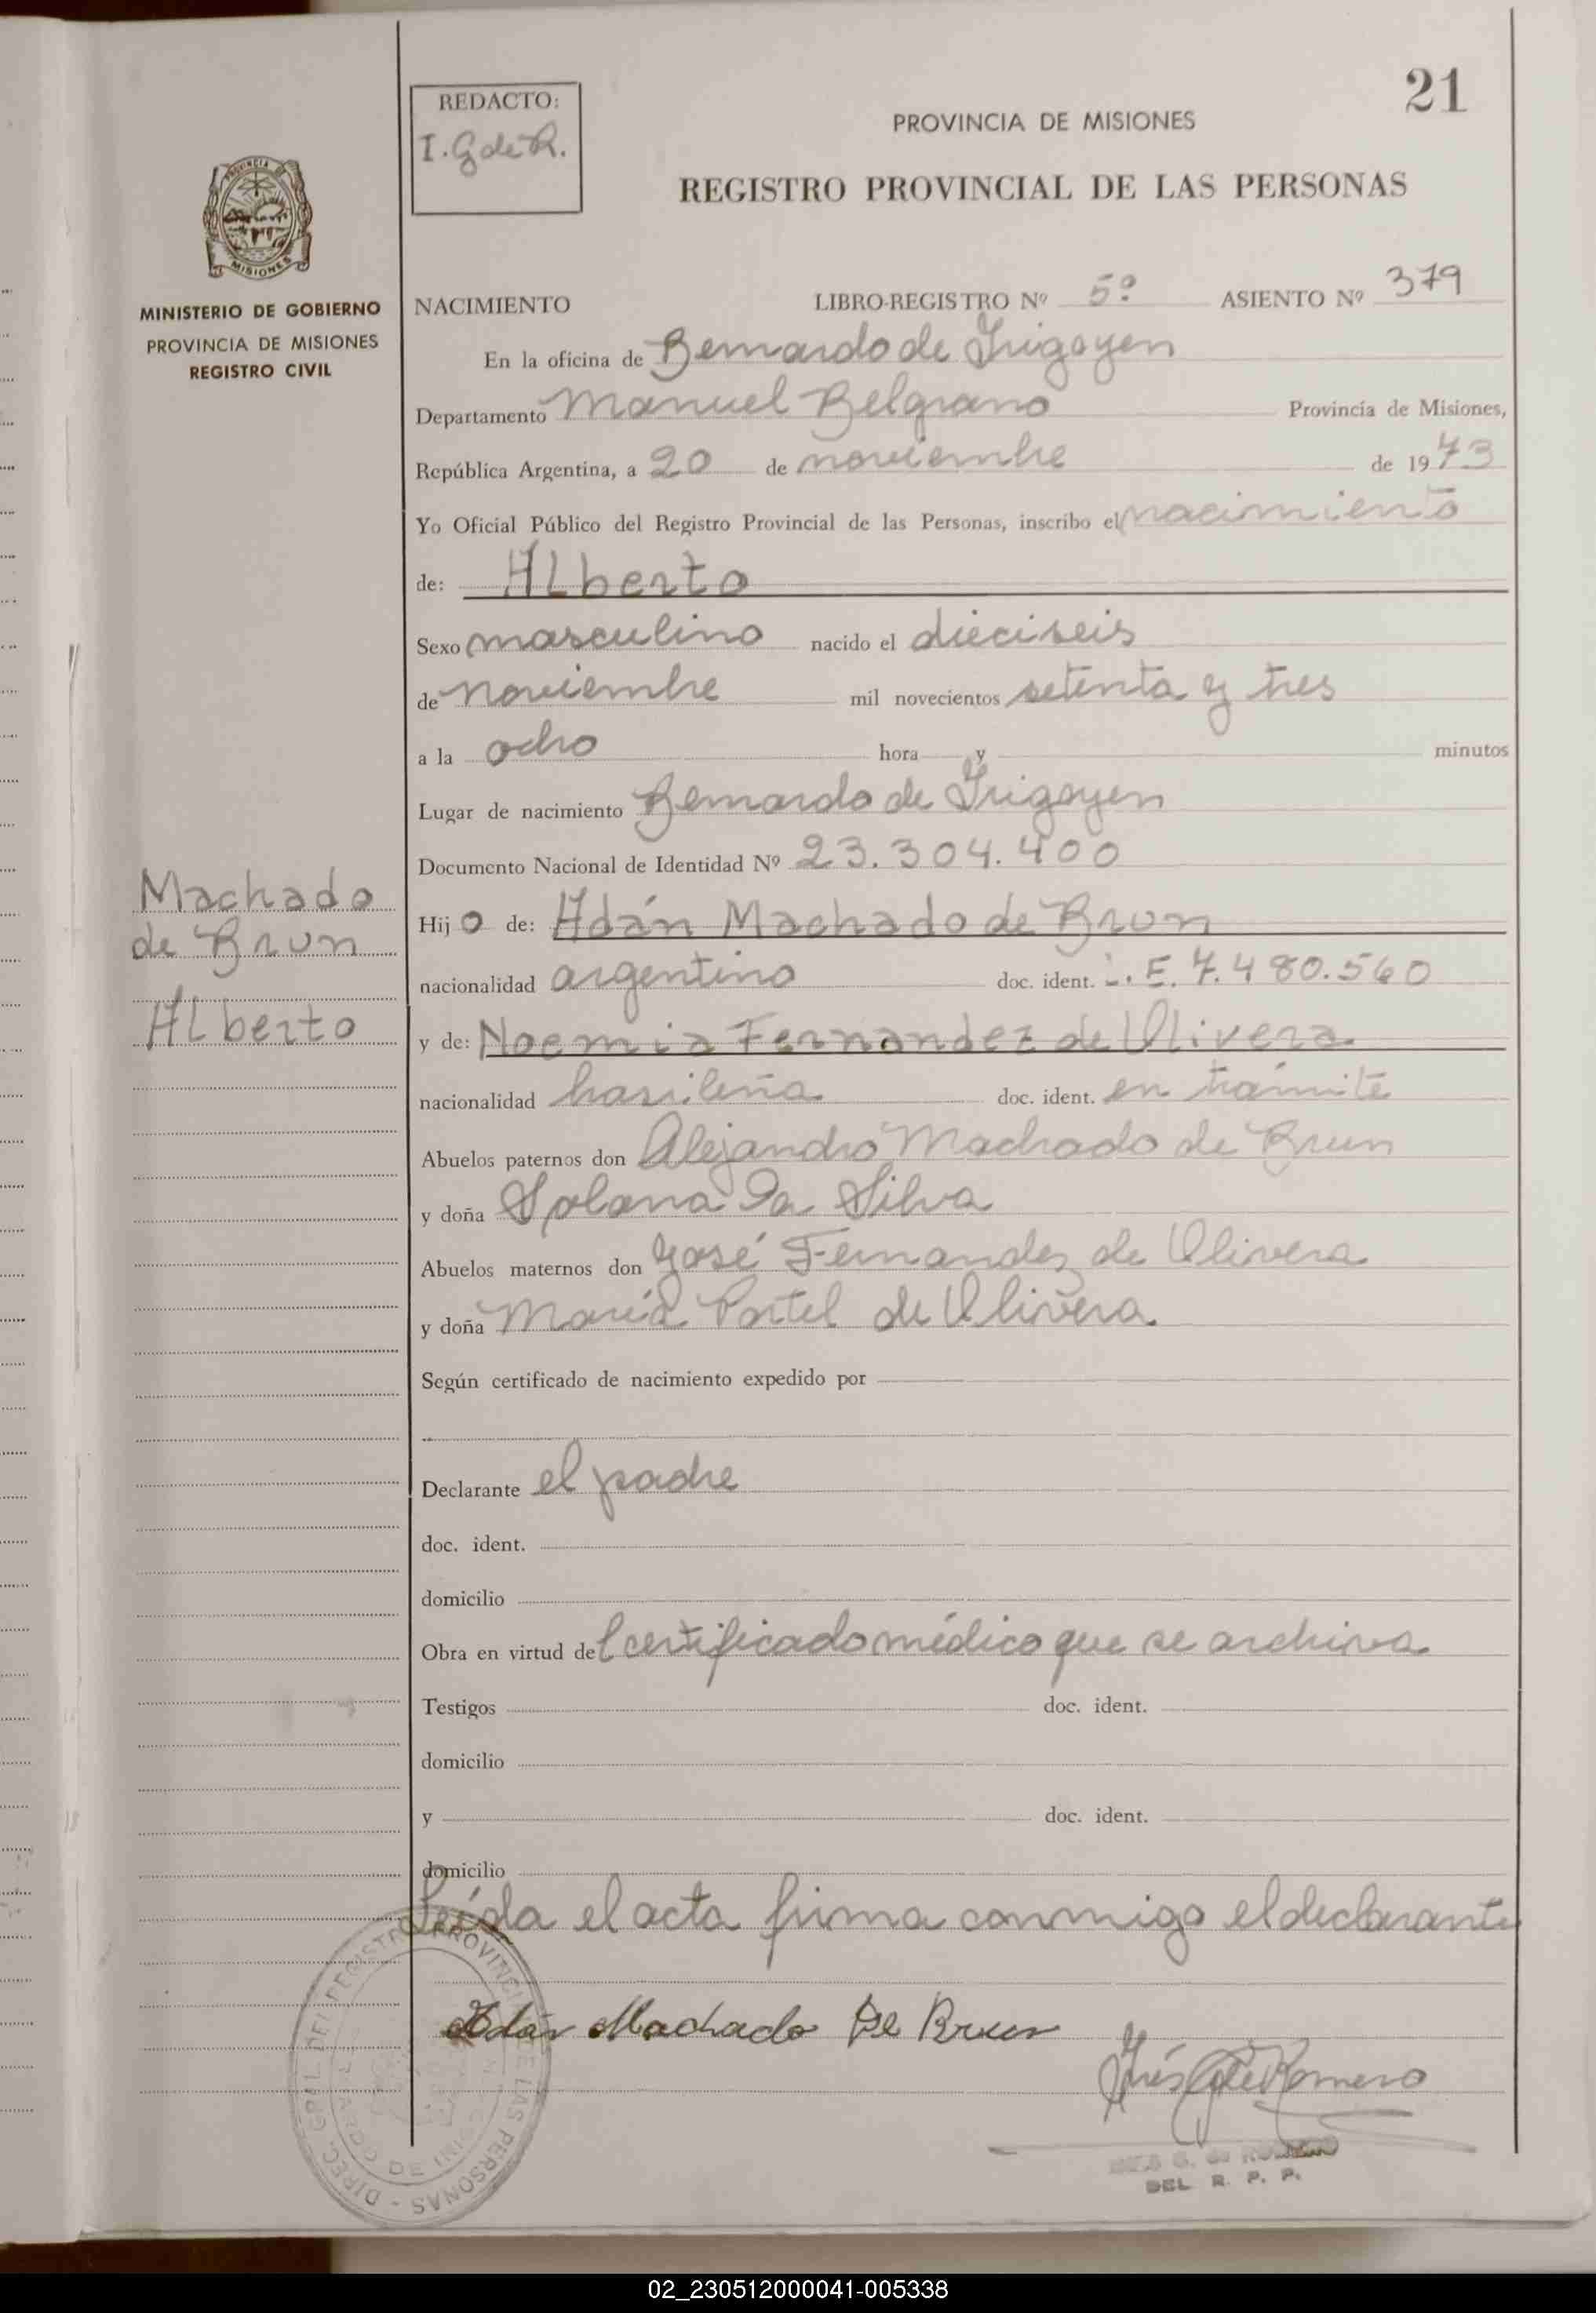 21
REDACTO:
I. G de R.
PROVINCIA DE MISIONES
REGISTRO PROVINCIAL DE LAS PERSONAS
PROVINCIA DE
MISIONES
MINISTERIO DE GOBIERNO
PROVINCIA DE MISIONES
REGISTRO CIVIL
NACIMIENTO LIBRO-REGISTRO Nº 5º ASIENTO Nº 379
En la oficina de Bernardo de Irigoyen
Departamento Manuel Belgrano Provincia de Misiones,
República Argentina, a 20 de noviembre de 1973
Yo Oficial Público del Registro Provincial de las Personas, inscribo el nacimiento
de: ALberto
Sexo masculino nacido el dieciseis
de noviembre mil novecientos setenta y tres
a la ocho hora y minutos
Lugar de nacimiento Bernardo de Irigoyen
Documento Nacional de Identidad Nº 23.304.400
Machado
de Brun
ALberto
Hijo de: Adán Machado de Brun
nacionalidad argentino doc. ident. L.E. 7.480.560
y de: Noemia Fernandez de Olivera
nacionalidad brasileña doc. ident. en trámite
Abuelos paternos don Alejandro Machado de Brun
y doña Solana Da Silva
Abuelos maternos don José Fernandez de Olivera
y doña María Portel de Olivera
Según certificado de nacimiento expedido por
Declarante el padre
doc. ident.
domicilio
Obra en virtud del certificado médico que se archiva
Testigos doc. ident.
domicilio
y doc. ident.
domicilio
Leída el acta firma conmigo el declarante
Adán Machado De Brun
Inés G de Romero
DIREC. GRAL. DEL REGISTRO PROVINCIAL DE LAS PERSONAS
DEL R. P. P.
02_230512000041-005338